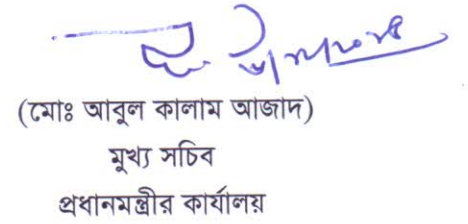 (মোঃ আবুল কালাম আজাদ)
মুখ্য সচিব
প্রধানমন্ত্রীর কার্যালয়